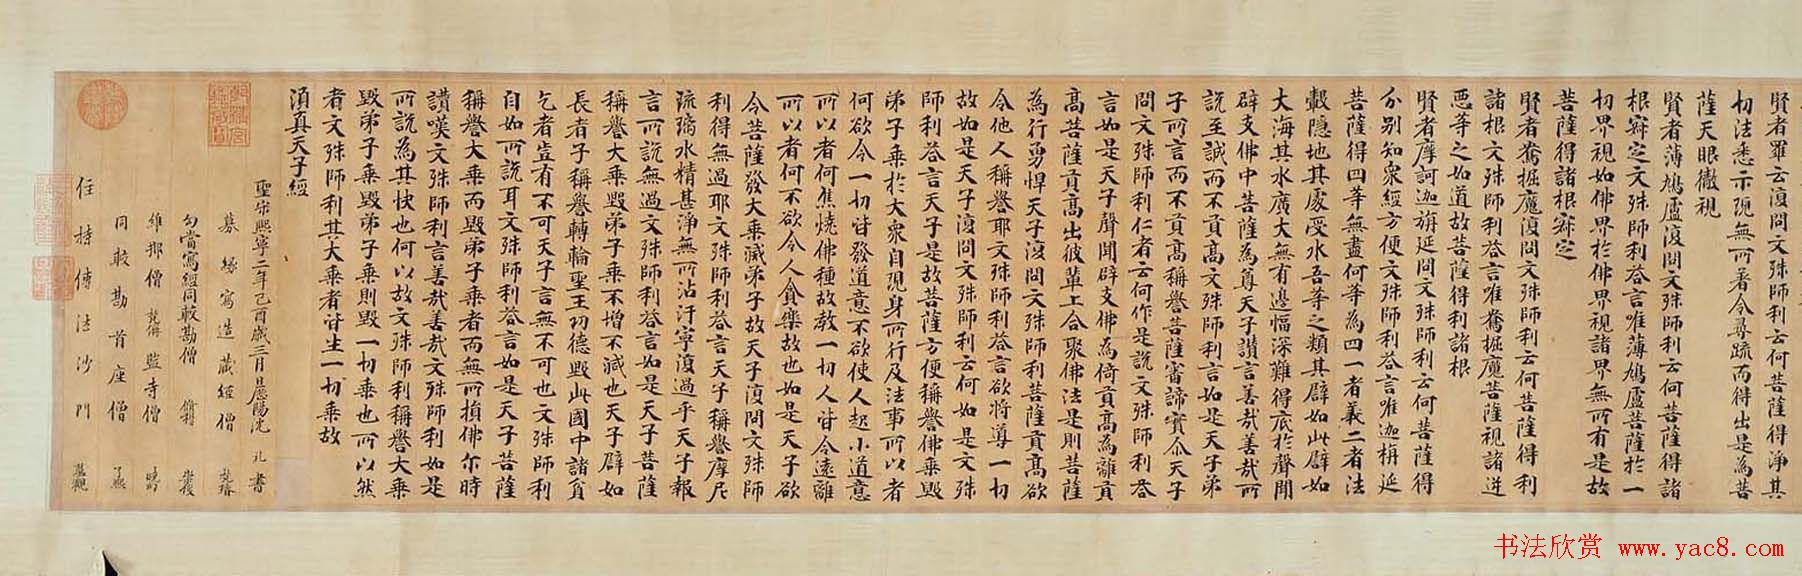 賢者羅云復問文殊師利云何菩薩得淨其
切法悉示現無所著令尋疏而得出是為菩
薩天眼徹視
賢者薄鳩盧復問文殊師利云何菩薩得諸
根寂定文殊師利荅言唯薄鳩盧菩薩於一
切界視如佛界於佛界視諸界無所有是故
菩薩得諸根寂定
賢者鴦掘魔復問文殊師利云何菩薩得利
諸根文殊師利荅言唯鴦掘魔菩薩視諸逆
惡等之如道故菩薩得利諸根
賢者摩訶迦旃延問文殊師利云何菩薩得
分別知衆經方便文殊師利荅言唯迦栴延
菩薩得四等無盡何等為四一者義二者法
大海其水廣大無有邊幅深難得底於聲聞
辟支佛中菩薩為尊天子讚言善哉善哉所
說至誠而不貢高文殊師利言如是天子弟
子所言而不貢高稱譽菩薩審諦實尒天子
問文殊師利仁者云何作是說文殊師利荅
言如是天子聲聞辟支佛為倚貢高為離貢
高菩薩貢高出彼輩上合聚佛法是則菩薩
為行勇悍天子復問文殊師利菩薩貢高欲
令他人稱譽耶文殊師利荅言欲將導一切
故如是天子復問文殊師利云何如是文殊
師利荅言天子是故菩薩方便稱譽佛乘毀
弟子乘於大衆自現身所行及法事所以者
何欲令一切皆發道意不欲使人起小道意
所以者何焦燒佛種故教一切人皆令遠離
所以者何不欲令人貪樂故也如是天子欲
令菩薩發大乘滅弟子故天子復問文殊師
利得無過耶文殊師利荅言天子稱譽摩尼
琉璃水精甚淨無所沾汙寧復過乎天子報
言所說無過文殊師利荅言如是天子菩薩
稱譽大乘毀弟子乘不增不減也天子辟如
長者子稱譽轉輪聖王功德毀此國中諸貧
乞者豈有不可天子言無不可也文殊師利
自如所說耳文殊師利荅言如是天子菩薩
稱譽大乘而毀弟子乘者而無所損佛尒時
讚嘆文殊師利言善哉善哉文殊師利如是
所說為其快也何以故文殊師利稱譽大乘
毀弟子乘毀弟子乘則毀一切乘也所以然
者文殊師利其大乘者皆生一切乘故
須真天子經
聖宋熙寧二年己酉歲三月 書
募緣寫造藏經僧
勾當寫經同敎勘僧
維那僧 監寺僧
同敎勘首座僧
住持傳法沙門
书法欣赏 www.yac8.com